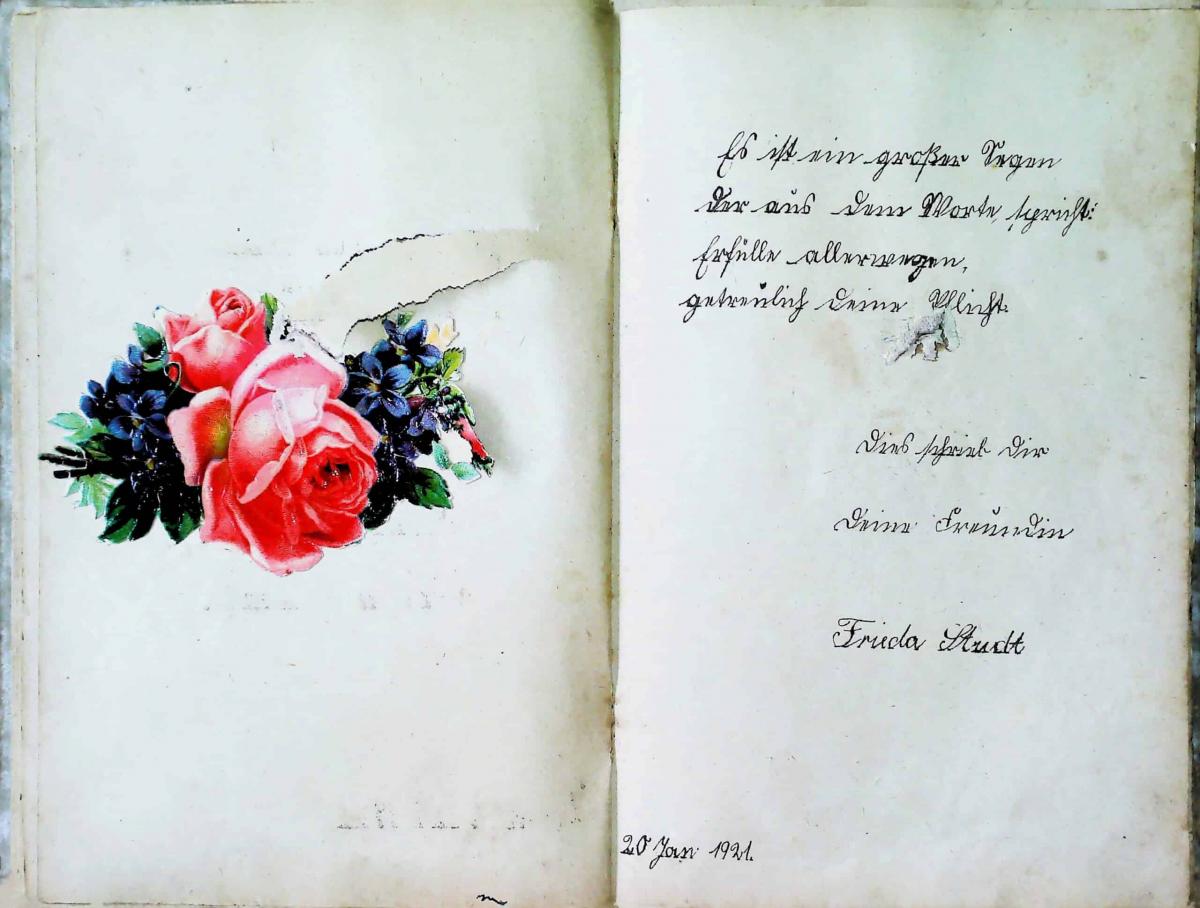 Es ist ein großer Segen
der aus dem Worte spricht:
Erfülle allerwegen,
getreulich deine Pflicht.
Dies schrieb Dir
Deine Freundin
Frieda Studt
20 Jan 1921.